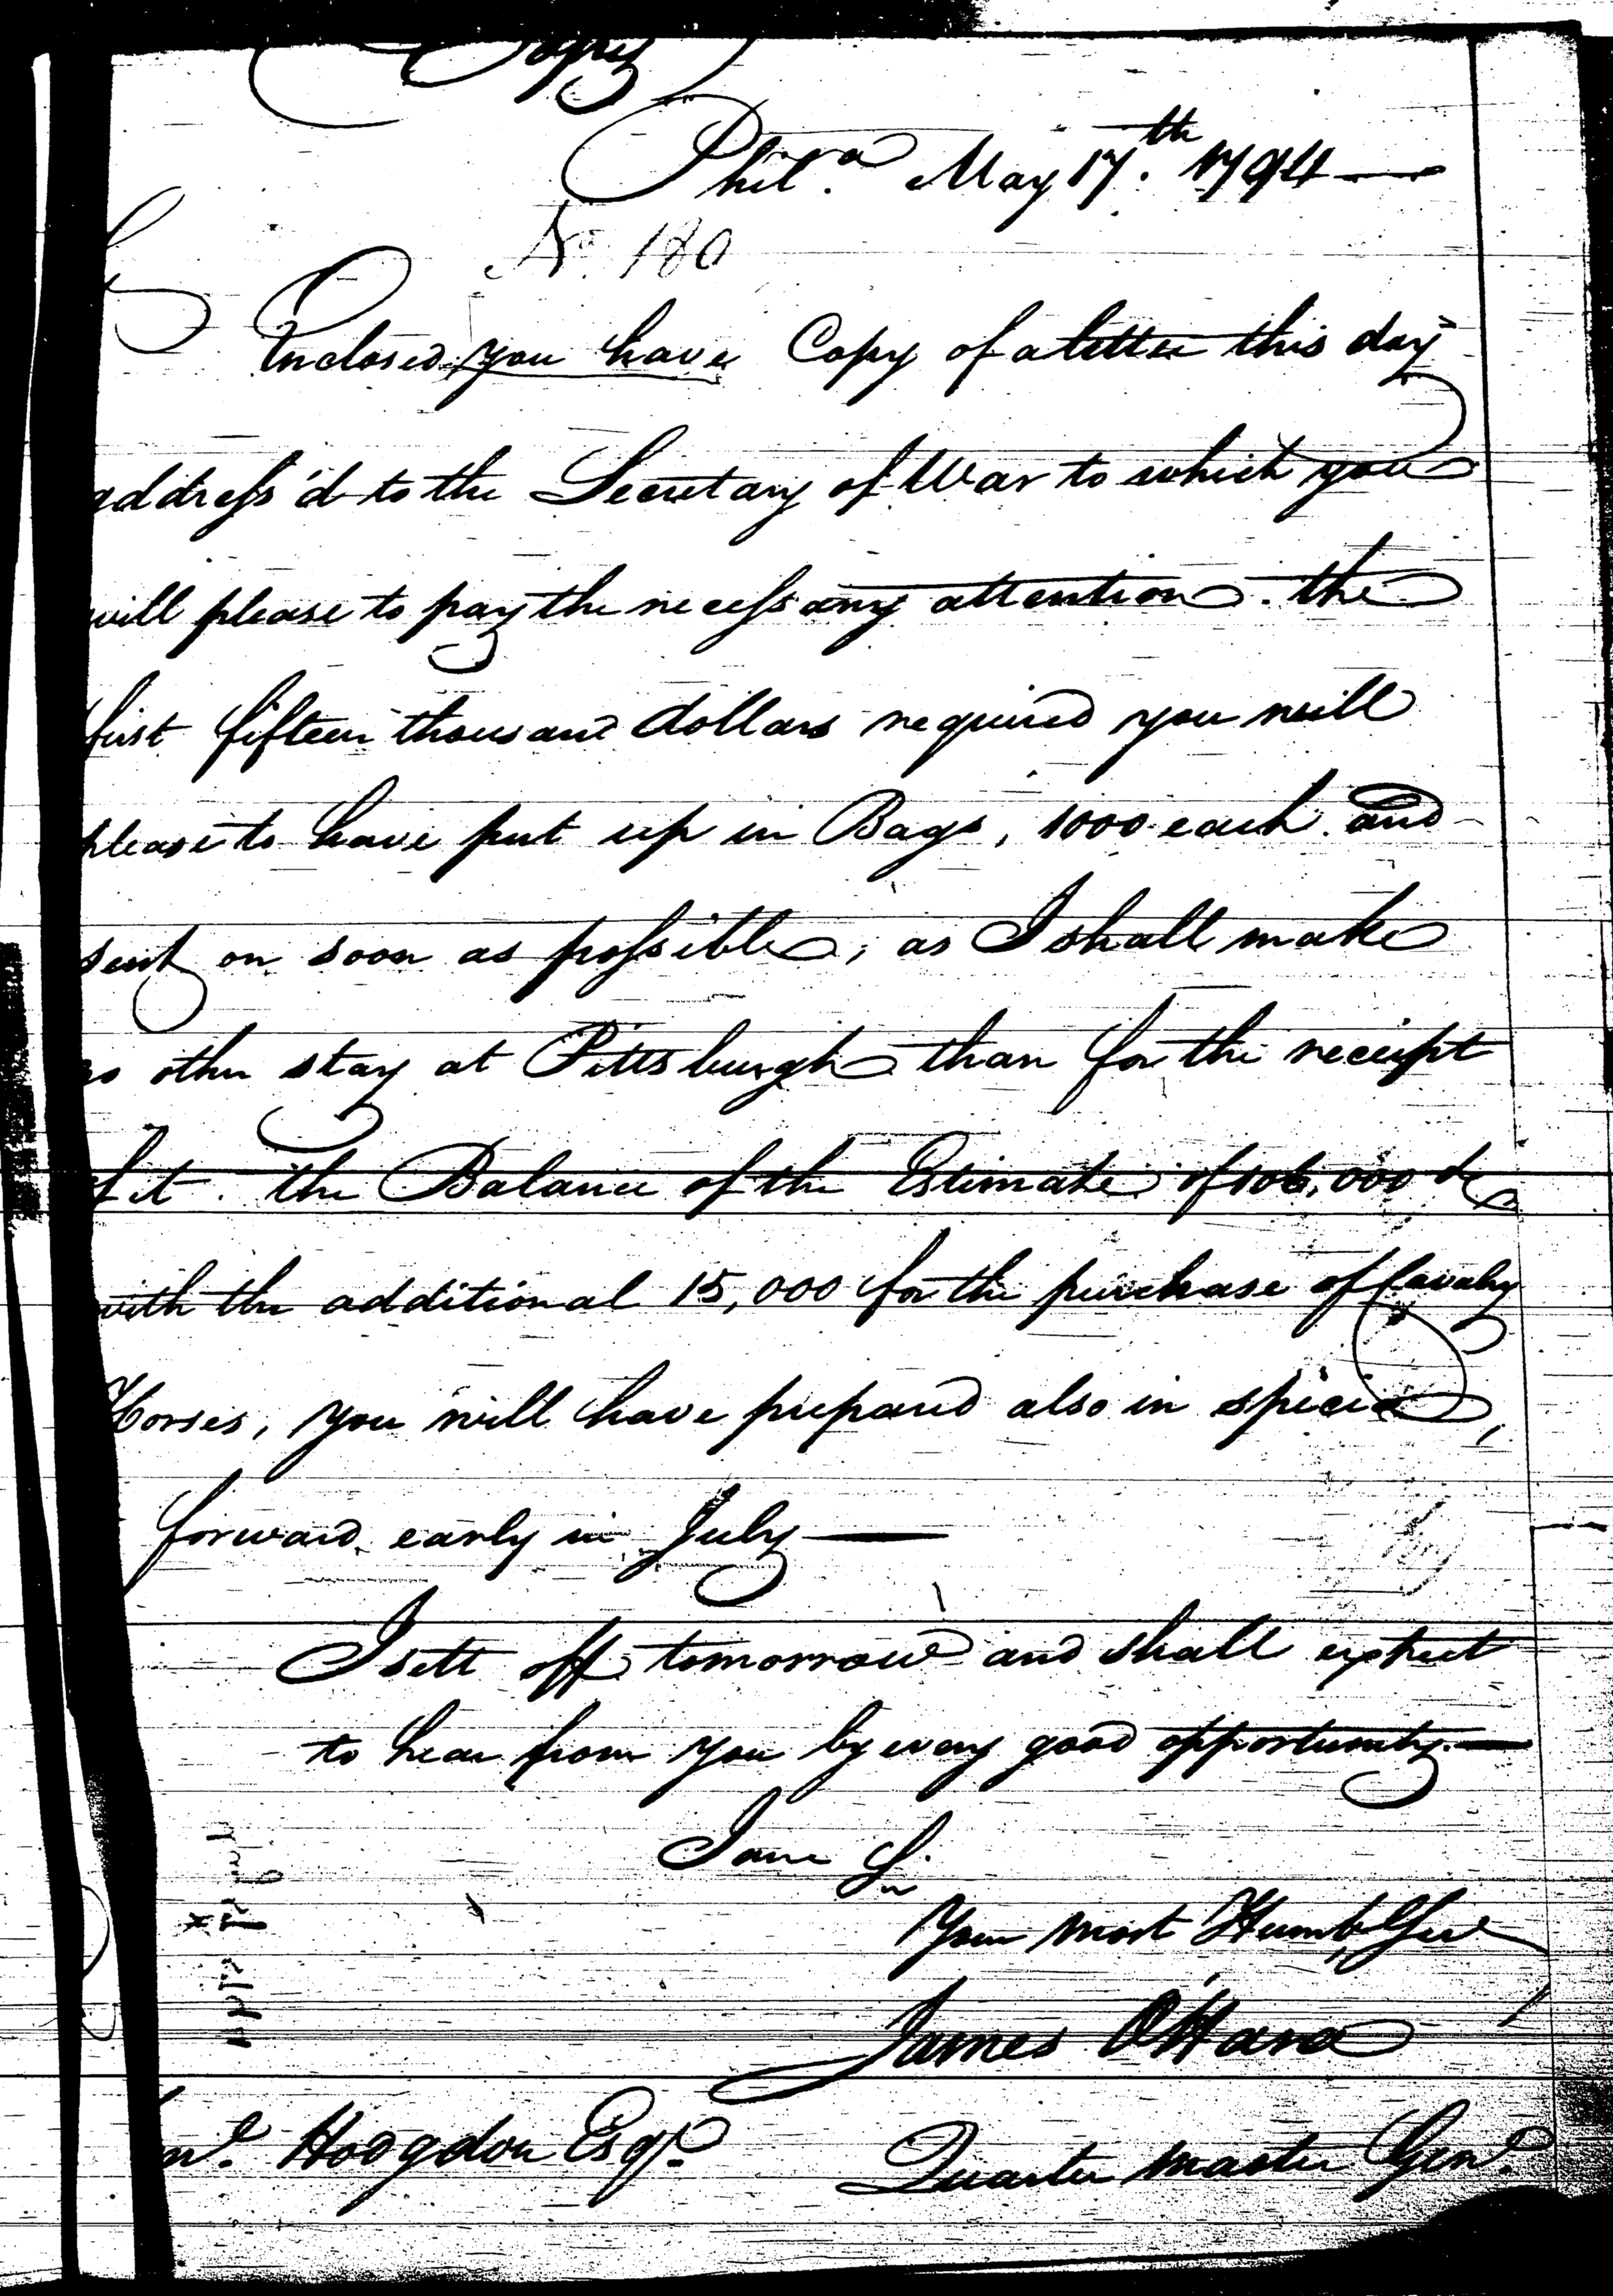 Copy
Phila. May 17th. 1794 —
No. 180
Enclosed you have Copy of a letter this day
address'd to the Secretary of War to which you
will please to pay the necessary attention. the
first fifteen thousand dollars required you will
please to have put up in Bags, 1000 each and
sent on soon as possible, as I shall make
no other stay at Pittsburgh than for the receipt
of it. the Balance of the Estimate of 106,000 ds
with the additional 15,000 for the purchase of Cavalry
Horses, you will have prepared also in specie,
forward early in July —
I sett off tomorrow and shall expect
to hear from you by every good opportunity. —
I am Sir
Your most Humb Ser
James OHara
ml. Hodgdon Esqr.
Quarter master Genl.